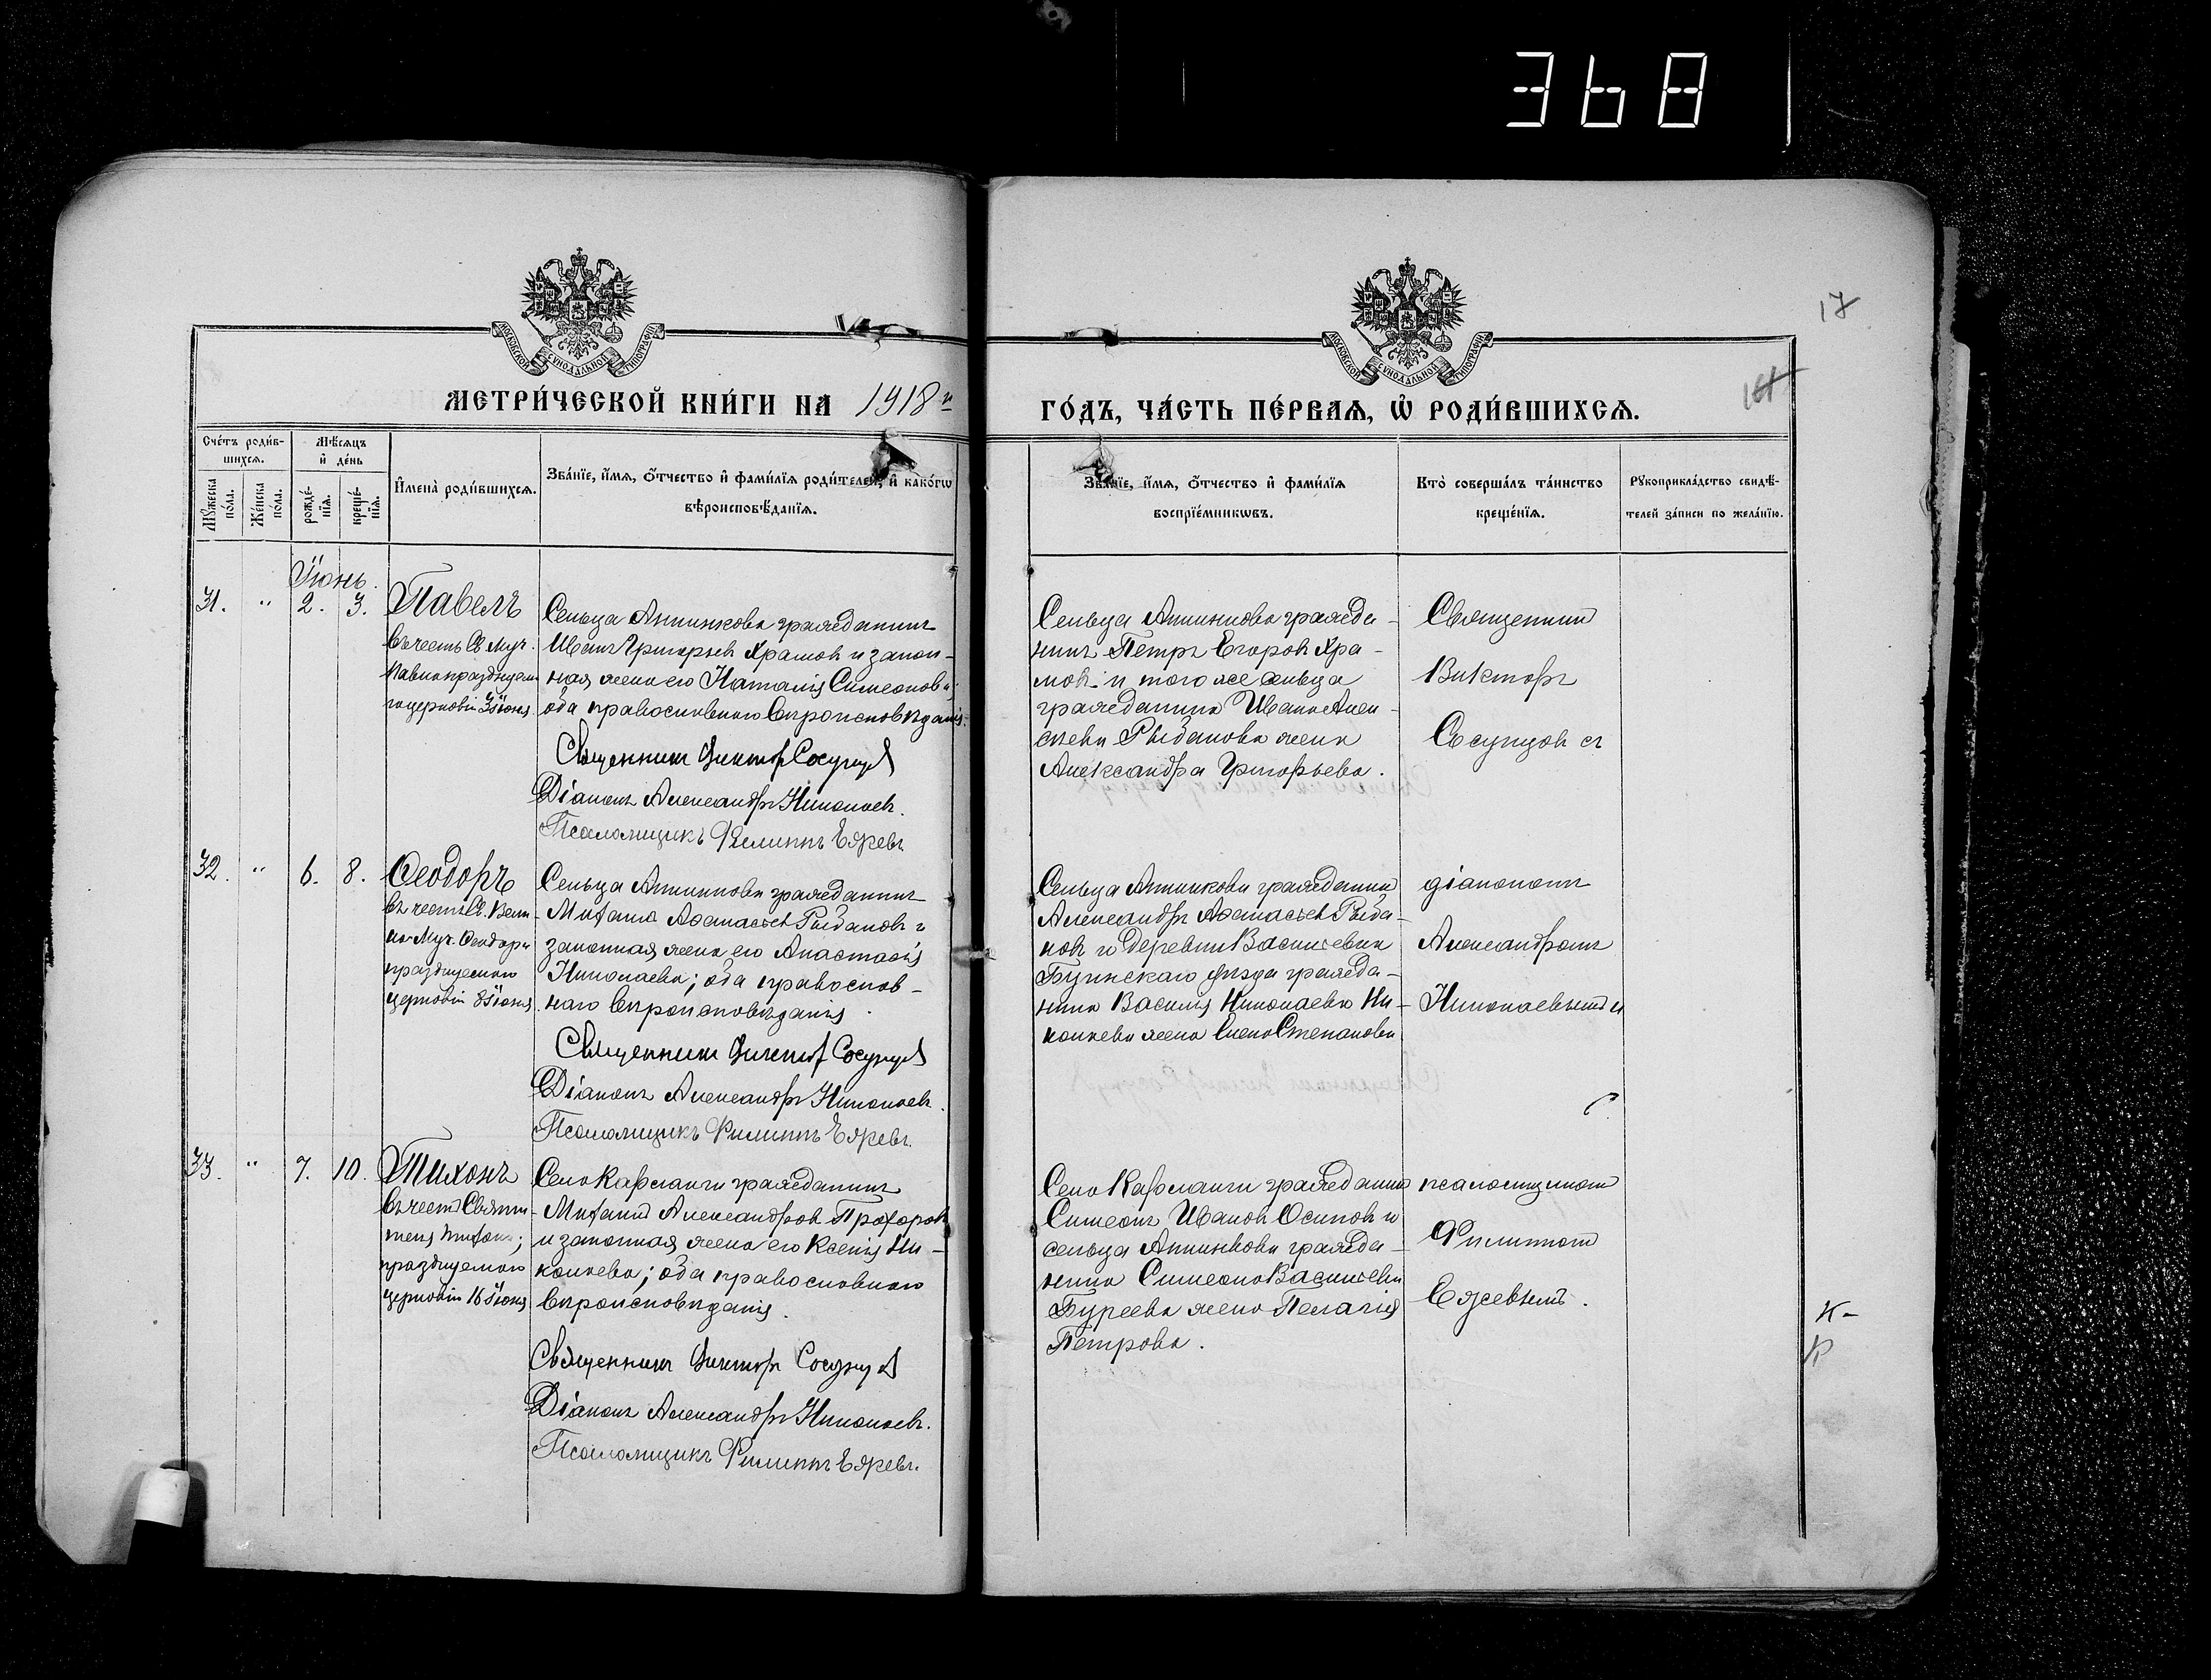 368
17
МОСКОВСКОЙ СѴНОДАЛЬНОЙ ТИПОГРАФІИ
МОСКОВСКОЙ СѴНОДАЛЬНОЙ ТИПОГРАФІИ
МЕТРИ́ЧЕСКОЙ КНИ́ГИ НА 1918й
ГО́ДЪ, ЧА́СТЬ ПЕ́РВАѦ, Ѡ҆ РОДИ́ВШИХСѦ.
Сче́тъ роди́в-
шихсѧ.
Мѣ́сѧцъ
и҆ де́нь
Мꙋ́жеска по́ла.
Же́нска по́ла.
рожде́-
нїѧ.
креще́-
нїѧ.
И҆мена̀ роди́вшихсѧ.
Зва́нїе, и҆́мѧ, ѻ҆́тчество и҆ фами́лїѧ роди́телей, и҆ како́гѡ
вѣроисповѣ́данїѧ.
Зва́нїе, и҆́мѧ, ѻ҆́тчество и҆ фами́лїѧ
воспрїе́мникѡвъ.
Кто̀ соверша́лъ та́инство
креще́нїѧ.
Рꙋкоприкла́дство свидѣ́-
телей за́писи по жела́нїю.
Іюнь.
31. " 2. 3.
Павелъ
въ честь Св. Муч.
Павла празднуем
го церковію 3 іюня
Сельца Аппинкова гражданинъ
Иванъ Григорьевъ Храмовъ и закон-
ная жена его Наталія Симеонова;
оба православнаго вѣроисповѣданія.
Священникъ Викторъ Сосунцовъ
Діаконъ Александръ Николаевъ.
Псаломщикъ Филиппъ Ежевъ.
Сельца Аппинкова гражда-
нинъ Петръ Егоровъ Хра-
мовъ и того же сельца
гражданина Ивана Алек-
сѣева Рыбакова жена
Александра Григорьева.
Священник
Викторъ
Сосунцовъ съ
32. " 6. 8.
Ѳеодоръ
въ честь Св. Вели-
ко-Муч. Ѳеодора
празднуемаго
церковію 8 іюня
Сельца Аппинкова гражданинъ
Михаилъ Аѳанасьевъ Рыбаковъ и
законная жена его Анастасія
Николаева; оба православ-
наго вѣроисповѣданія.
Священникъ Викторъ Сосунцовъ
Діаконъ Александръ Николаевъ.
Псаломщикъ Филиппъ Ежевъ.
Сельца Аппинкова гражданин
Александръ Аѳанасьевъ Рыба-
ковъ и деревни Васильевки
Буинскаго уѣзда гражда-
нина Василія Николаева Ни-
колаева жена Елена Степанова
діакономъ
Александромъ
Николаевымъ и
33. " 7. 10.
Тихонъ
въ честь Святи-
теля Тихона;
празднуемаго
церковію 16 іюня
Село Кармалги гражданинъ
Михаилъ Александровъ Прохоровъ
и законная жена его Ксенія Ни-
колаева; оба православнаго
вѣроисповѣданія.
Священникъ Викторъ Сосунцовъ
Діаконъ Александръ Николаевъ.
Псаломщикъ Филиппъ Ежевъ.
Село Кармалги гражданинъ
Симеонъ Ивановъ Осиповъ и
сельца Аппинкова гражда-
нина Симеона Васильева
Буреева жена Пелагія
Петрова.
псаломщикомъ
Филиппомъ
Ежевымъ.